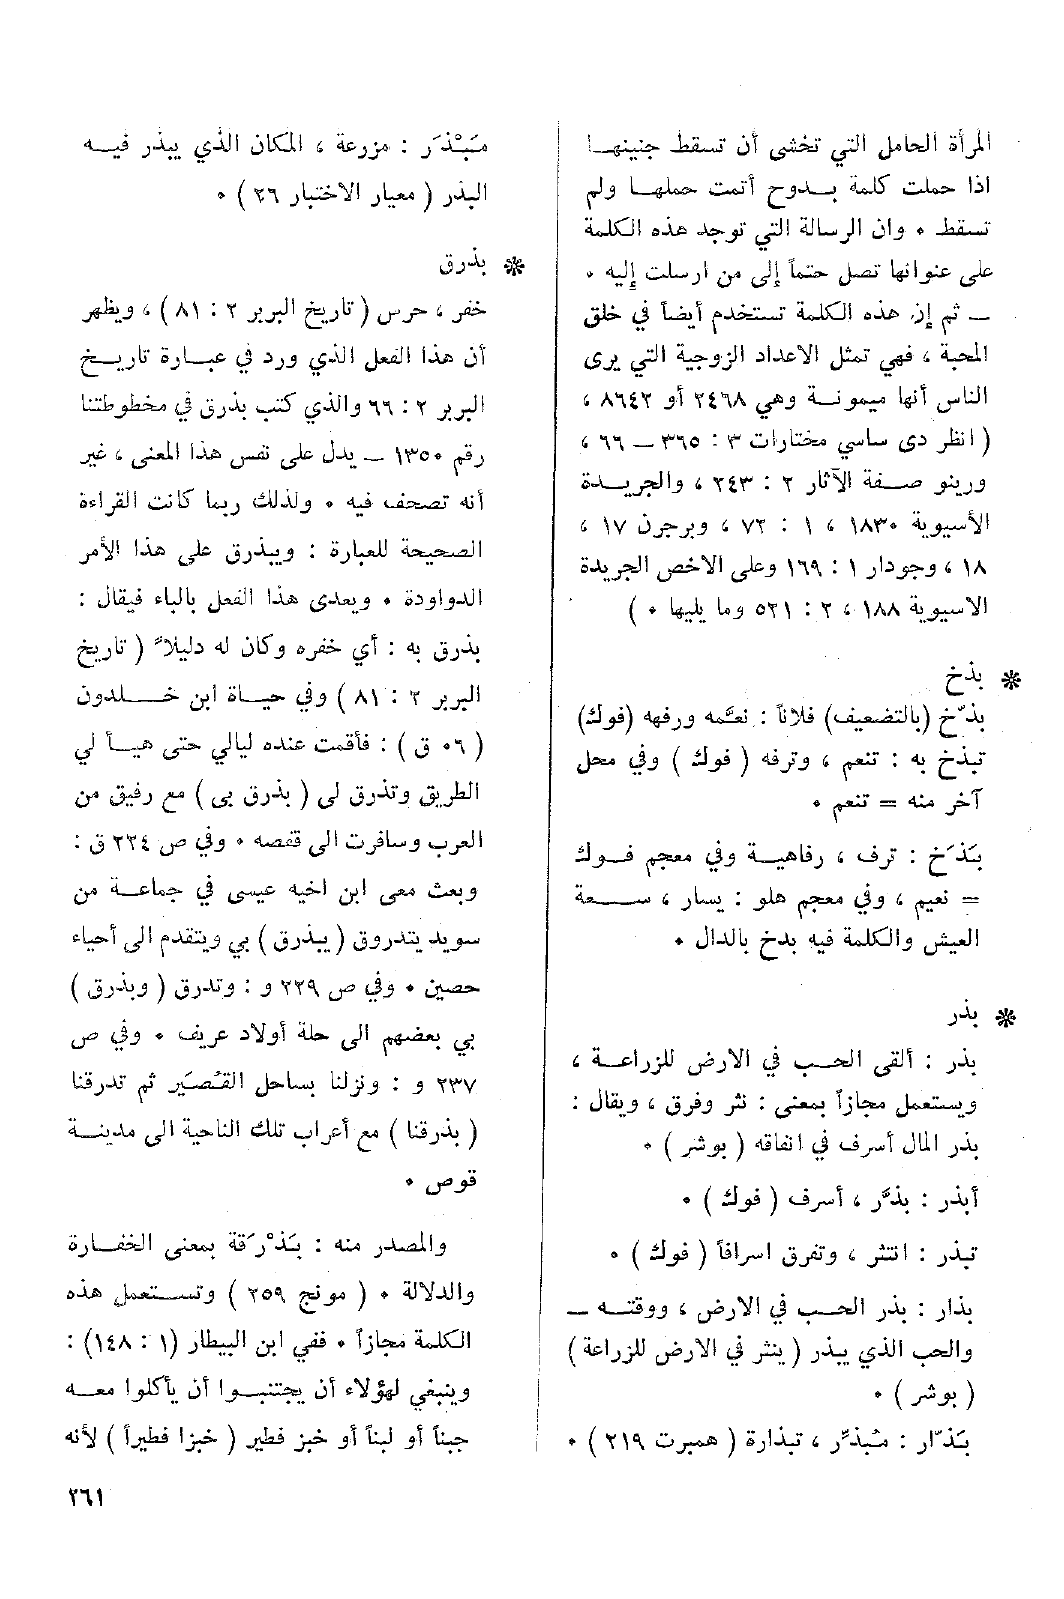 المرأة الحامل التي تخشى أن تسقط جنينهــا
اذا حملت كلمة بـــدوح أتمت حملهـــا ولم
تسقط ٠ وان الرسالة التي توجد هذه الكلمة
على عنوانها تصل حتماً إلى من ارسلت إليه ٠
ــ ثم إن هذه الكلمة تستخدم أيضاً في خلق
المحبة ، فهي تمثل الاعداد الزوجية التي يرى
الناس أنها ميمونــة وهي ٢٤٦٨ أو ٨٦٤٢ ،
( انظر دى ساسي مختارات ٣ : ٣٦٥ ــ ٦٦ ،
ورينو صــفة الآثار ٢ : ٢٤٣ ، والجريــدة
الأسيوية ١٨٣٠ ، ١ : ٧٢ ، وبرجرن ١٧ ،
١٨ ، وجودار ١ : ١٦٩ وعلى الاخص الجريدة
الاسيوية ١٨٨ ، ٢ : ٥٢١ وما يليها ٠ )
❊ بذخ
بذّخ (بالتضعيف) فلاناً : نعَّمه ورفهه (فوك)
تبذخ به : تنعم ، وترفه ( فوك ) وفي محل
آخر منه = تنعم ٠
بَذَخ : ترف ، رفاهيــة وفي معجم فــوك
= نعيم ، وفي معجم هلو : يسار ، ســــعة
العيش والكلمة فيه بدخ بالدال ٠
❊ بذر
بذر : ألقى الحــب في الارض للزراعــة ،
ويستعمل مجازاً بمعنى : نثر وفرق ، ويقال :
بذر المال أسرف في انفاقه ( بوشر ) ٠
أبذر : بذَّر ، أسرف ( فوك ) ٠
تبذر : انتثر ، وتفرق اسرافاً ( فوك ) ٠
بذار : بذر الحــب في الارض ، ووقتــه ــ
والحب الذي يبذر ( ينثر في الارض للزراعة )
( بوشر ) ٠
بَذّار : مُبذِّر ، تبذارة ( همبرت ٢١٩ ) ٠
مَبْذَر : مزرعة ، المكان الذي يبذر فيــه
البذر ( معيار الاختبار ٢٦ ) ٠
❊ بذرق
خفر ، حرس ( تاريخ البربر ٢ : ٨١ ) ، ويظهر
أن هذا الفعل الذي ورد في عبــارة تاريــخ
البربر ٢ : ٦٦ والذي كتب بذرق في مخطوطتنا
رقم ١٣٥٠ ــ يدل على نفس هذا المعنى ، غير
أنه تصحف فيه ٠ ولذلك ربما كانت القراءة
الصحيحة للعبارة : ويبذرق على هذا الأمر
الدواودة ٠ ويعدى هذا الفعل بالباء فيقال :
بذرق به : أي خفره وكان له دليلاً ( تاريخ
البربر ٢ : ٨١ ) وفي حيــاة ابن خــــلدون
( ٠٦ ق ) : فأقمت عنده ليالي حتى هيــأ لي
الطريق وتذرق لى ( بذرق بى ) مع رفيق من
العرب وسافرت الى قفصه ٠ وفي ص ٢٢٤ ق :
وبعث معى ابن اخيه عيسى في جماعــة من
سويد يتدروق ( يبذرق ) بي ويتقدم الى أحياء
حصين ٠ وفي ص ٢٢٩ و : وتدرق ( وبذرق )
بي بعضهم الى حلة أولاد عريف ٠ وفي ص
٢٣٧ و : ونزلنا بساحل القُصَيْر ثم تدرقنا
( بذرقنا ) مع أعراب تلك الناحية الى مدينــة
قوص ٠
والمصدر منه : بَذْرَقة بمعنى الخفــارة
والدلالة ٠ ( مونج ٢٥٩ ) وتســتعمل هذه
الكلمة مجازاً ٠ ففي ابن البيطار (١ : ١٤٨) :
وينبغي لهؤلاء أن يجتنبــوا أن يأكلوا معــه
جبناً أو لبناً أو خبز فطير ( خبزا فطيراً ) لأنه
٢٦١